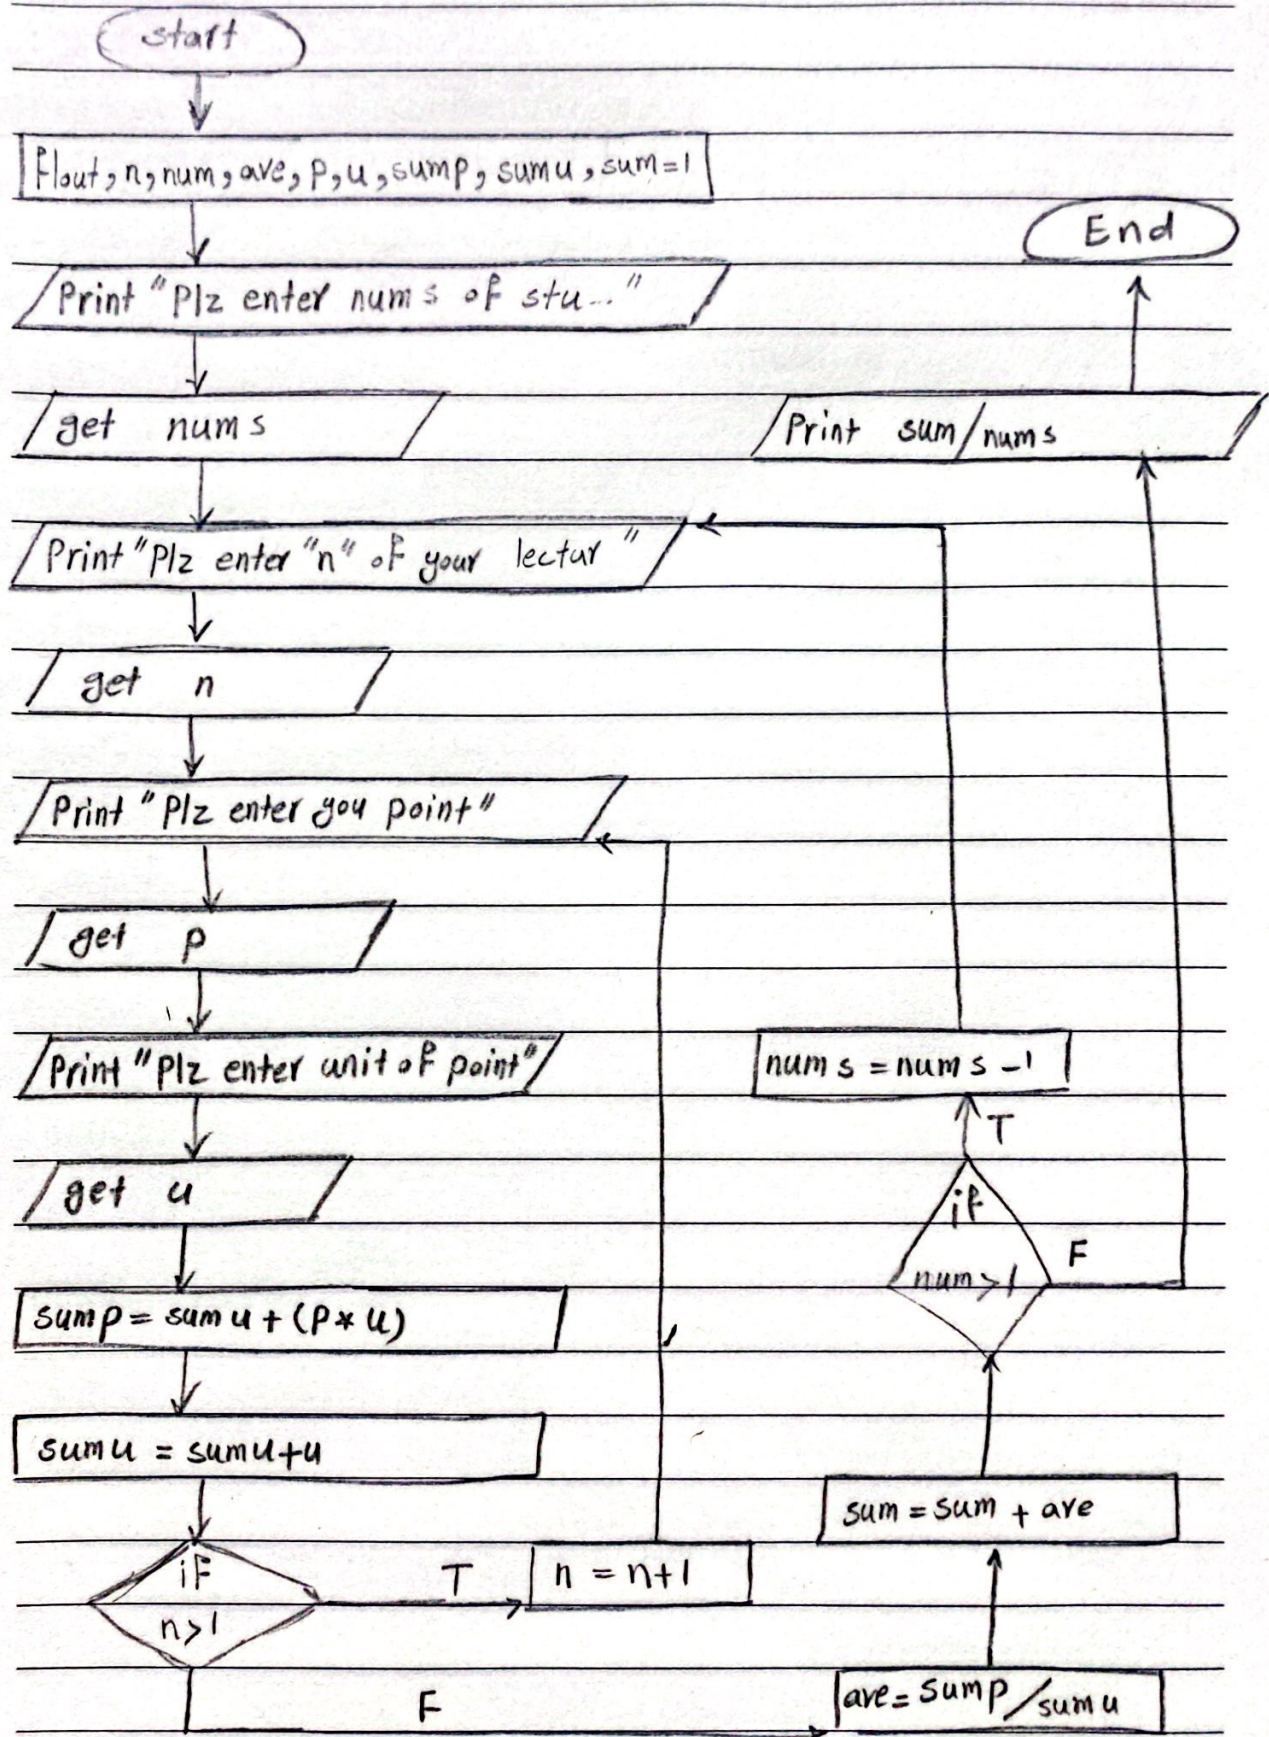 start
flout, n, num, ave, p, u, sump, sumu, sum=1
Print "Plz enter nums of stu..."
get nums
Print "Plz enter "n" of your lectur"
get n
Print "Plz enter you point"
get p
Print "Plz enter unit of point"
get u
sump = sumu + (P * u)
sumu = sumu+u
if
n>1
T
n = n+1
F
ave = sump/sumu
sum = sum + ave
if
num>1
T
F
nums = nums -1
Print sum/nums
End